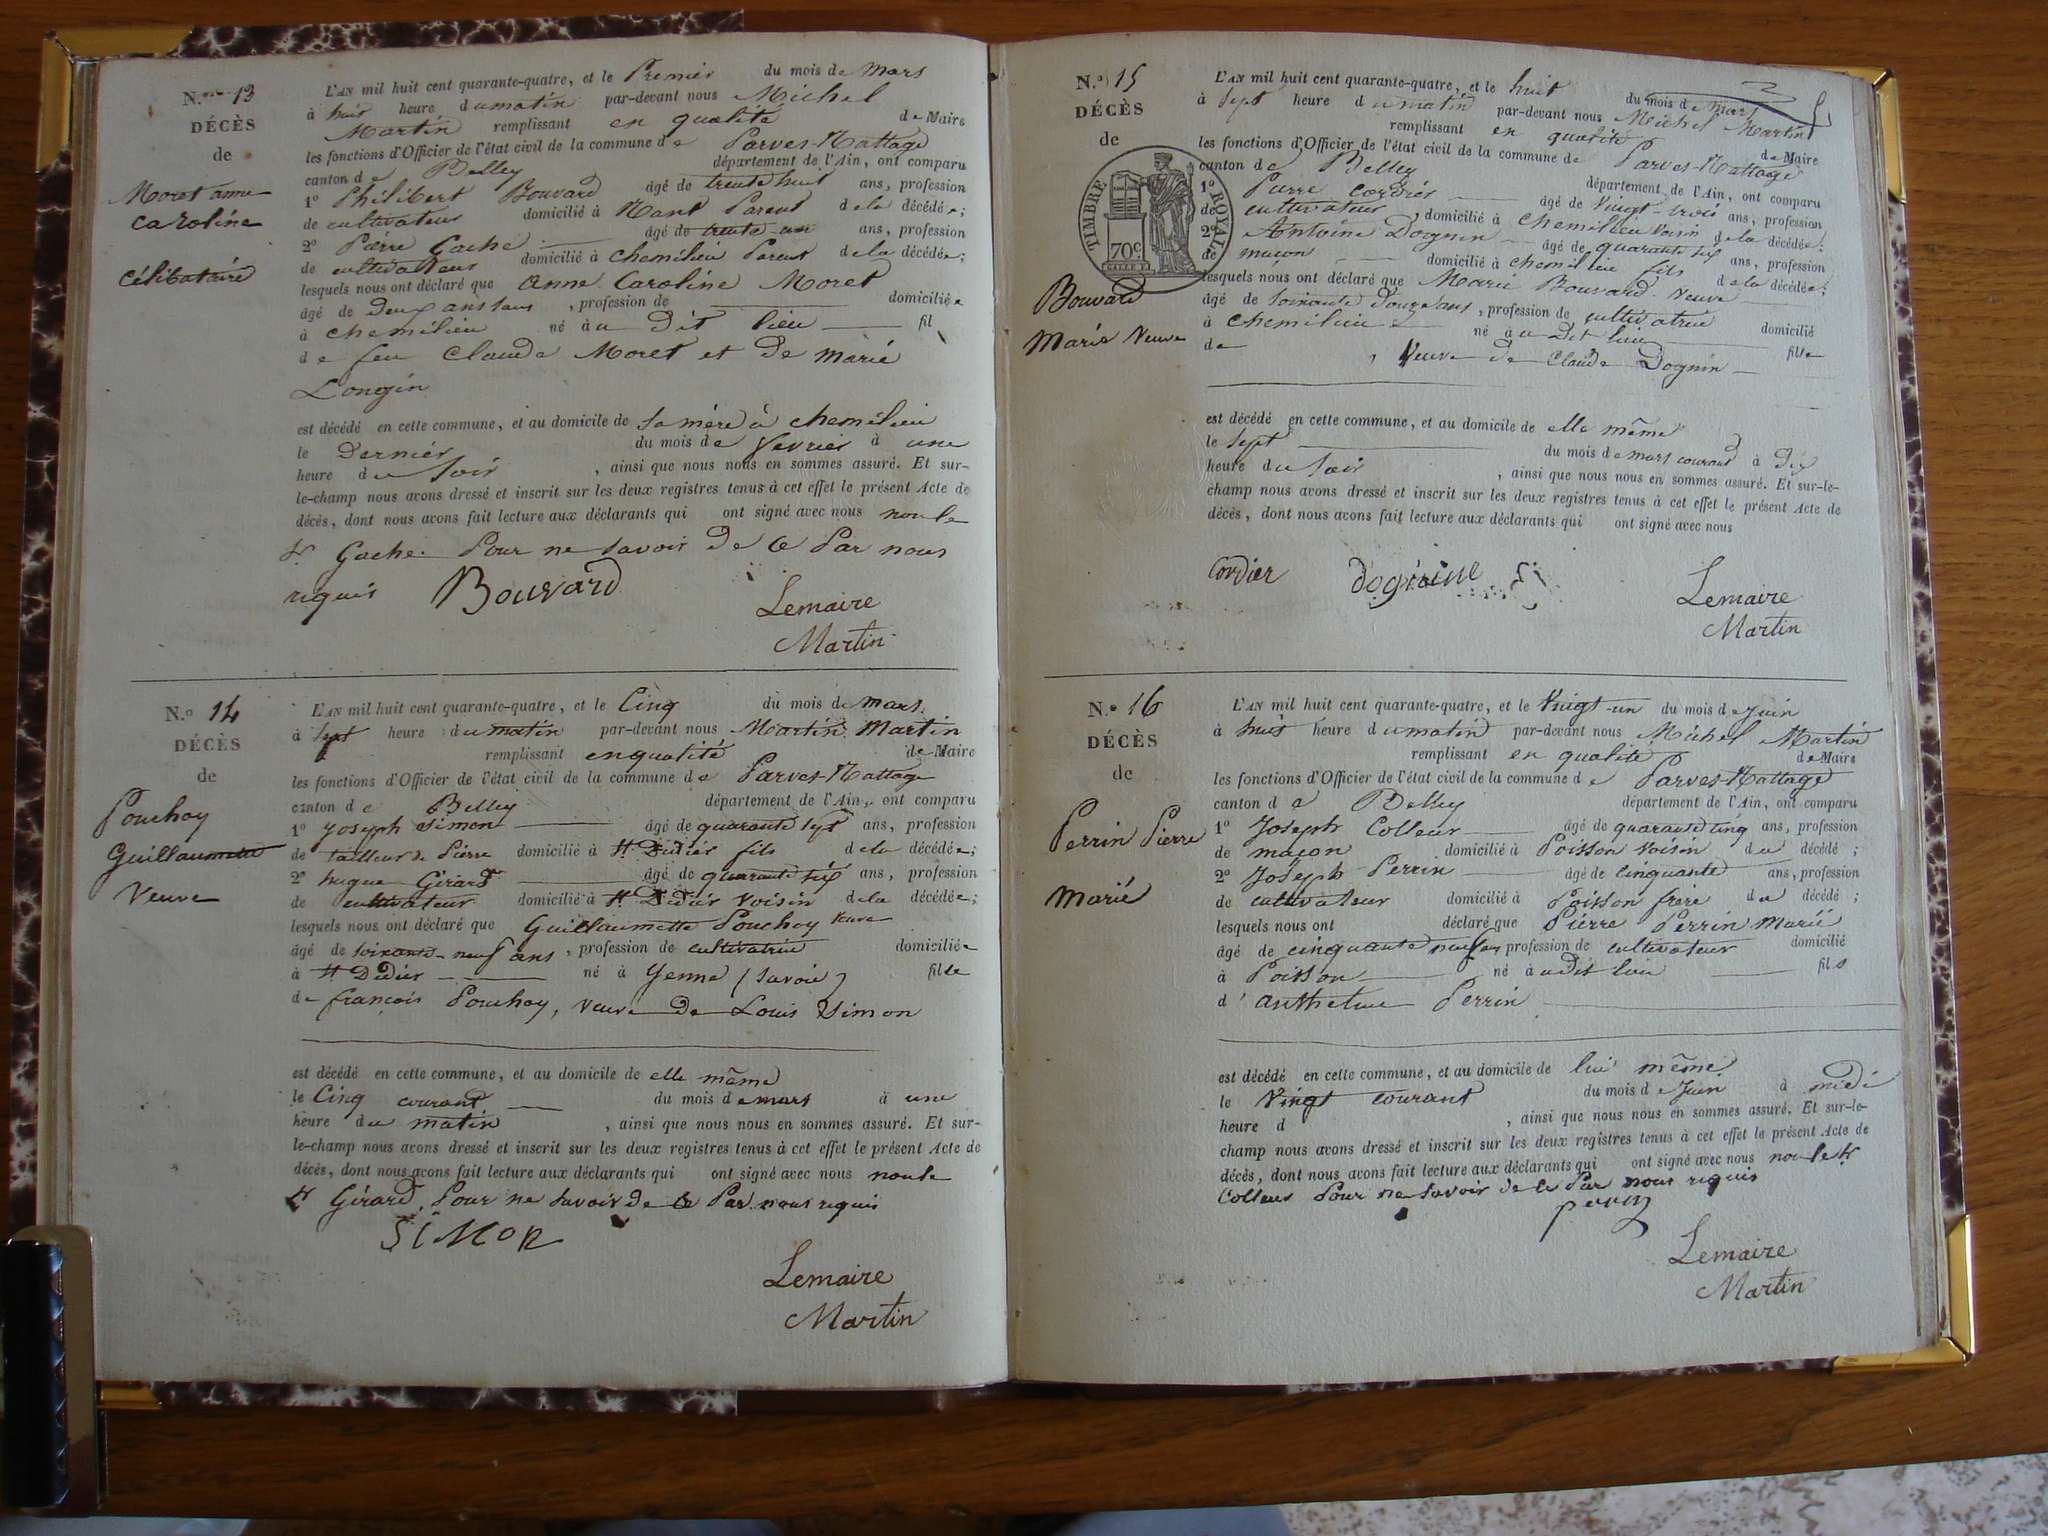 N.o 13
DÉCÈS
de
Moret anne
caroline
célibataire
L'AN mil huit cent quarante-quatre, et le Premier du mois de Mars
à huit heure du matin par-devant nous Michel
Martin remplissant en qualité de Maire
les fonctions d'Officier de l'état civil de la commune de Parves-Nattage
canton de Belley département de l'Ain, ont comparu
1o Philibert Bouvard âgé de trente huit ans, profession
de cultivateur domicilié à Nant Parent de la décédée;
2o Pierre Gache âgé de trente-un ans, profession
de cultivateur domicilié à chemilieu Parent de la décédée;
lesquels nous ont déclaré que Anne Caroline Moret
âgé de Deux ans , profession de domiciliée
à chemilieu né à u Dit lieu fil
de feu Claude Moret et de Marie
Longin
est décédé en cette commune, et au domicile de sa mère à chemilieu
le Dernier du mois de Fevrier à une
heure du Soir , ainsi que nous nous en sommes assuré. Et sur-
le-champ nous avons dressé et inscrit sur les deux registres tenus à cet effet le présent Acte de
décès, dont nous avons fait lecture aux déclarants qui ont signé avec nous non le
sr Gache. Pour ne savoir de ce Par nous
requis Bouvard
Lemaire
Martin
N.o 14
DÉCÈS
de
Pouchoy
Guillaumette
Veuve
L'AN mil huit cent quarante-quatre, et le Cinq du mois de mars
à sept heure du matin par-devant nous Martin Martin
remplissant en qualité de Maire
les fonctions d'Officier de l'état civil de la commune de Parves-Nattage
canton de Belley département de l'Ain, ont comparu
1o Joseph Simon âgé de quarante sept ans, profession
de tailleur de Pierre domicilié à St Didier fils de la décédée;
2o hugue Girard âgé de quarante six ans, profession
de cultivateur domicilié à St Didier Voisin de la décédée;
lesquels nous ont déclaré que Guillaumette Pouchoy veuve
âgé de soixante-neuf ans , profession de cultivatrice domiciliée
à St Didier né à Yenne (Savoie) fille
de françois Pouchoy, veuve de Louis Simon
est décédé en cette commune, et au domicile de elle même
le Cinq courant du mois de mars à une
heure du matin , ainsi que nous nous en sommes assuré. Et sur-
le-champ nous avons dressé et inscrit sur les deux registres tenus à cet effet le présent Acte de
décès, dont nous avons fait lecture aux déclarants qui ont signé avec nous non le
sr Girard, Pour ne savoir de ce Par nous requis
SiMON
Lemaire
Martin
N.o 15
DÉCÈS
de
TIMBRE ROYAL
70c
Bouvard
Marie Veuve
L'AN mil huit cent quarante-quatre, et le huit du mois de Mars
à sept heure du matin par-devant nous Michel Martin
remplissant en qualité de Maire
les fonctions d'Officier de l'état civil de la commune de Parves-Nattage
canton de Belley département de l'Ain, ont comparu
1o Pierre cordier âgé de Vingt-trois ans, profession
de cultivateur, domicilié à Chemilieu Voisin de la décédée;
2o Antoine Dognin âgé de quarante six ans, profession
de maçon domicilié à chemilieu fils de la décédée;
lesquels nous ont déclaré que Marie Bouvard Veuve
âgé de soixante Douze ans , profession de cultivatrice domicilié
à chemilieu né à u Dit lieu fille
de , Veuve de Claude Dognin
est décédé en cette commune, et au domicile de elle même
le sept du mois de mars courant à Dix
heure du soir , ainsi que nous nous en sommes assuré. Et sur-le-
champ nous avons dressé et inscrit sur les deux registres tenus à cet effet le présent Acte de
décès, dont nous avons fait lecture aux déclarants qui ont signé avec nous
Cordier
Lemaire
Martin
N.o 16
DÉCÈS
de
Perrin Pierre
Marié
L'AN mil huit cent quarante-quatre, et le Vingt-un du mois de Juin
à huit heure du matin par-devant nous Michel Martin
remplissant en qualité de Maire
les fonctions d'Officier de l'état civil de la commune de Parves-Nattage
canton de Belley département de l'Ain, ont comparu
1o Joseph Colleur âgé de quarante cinq ans, profession
de maçon domicilié à Poisson Voisin du décédé ;
2o Joseph Perrin âgé de cinquante ans, profession
de cultivateur domicilié à Poisson frère du décédé ;
lesquels nous ont déclaré que Pierre Perrin Marié
âgé de cinquante neuf ans, profession de cultivateur domicilié
à Poisson né à u dit lieu fils
d'anthelme Perrin
est décédé en cette commune, et au domicile de lui même
le Vingt courant du mois de Juin à midi
heure d , ainsi que nous nous en sommes assuré. Et sur-le-
champ nous avons dressé et inscrit sur les deux registres tenus à cet effet le présent Acte de
décès, dont nous avons fait lecture aux déclarants qui ont signé avec nous non le sr
Colleur Pour ne savoir de ce Par nous requis
Lemaire
Martin